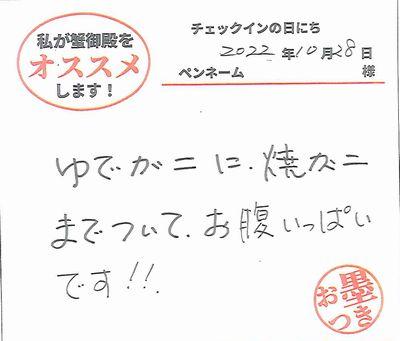 私が蟹御殿を
オススメ
します！
チェックインの日にち
2022年10月28日
ペンネーム 様
ゆでガニに、焼ガニ
までついて、お腹いっぱい
です!!
お墨つき